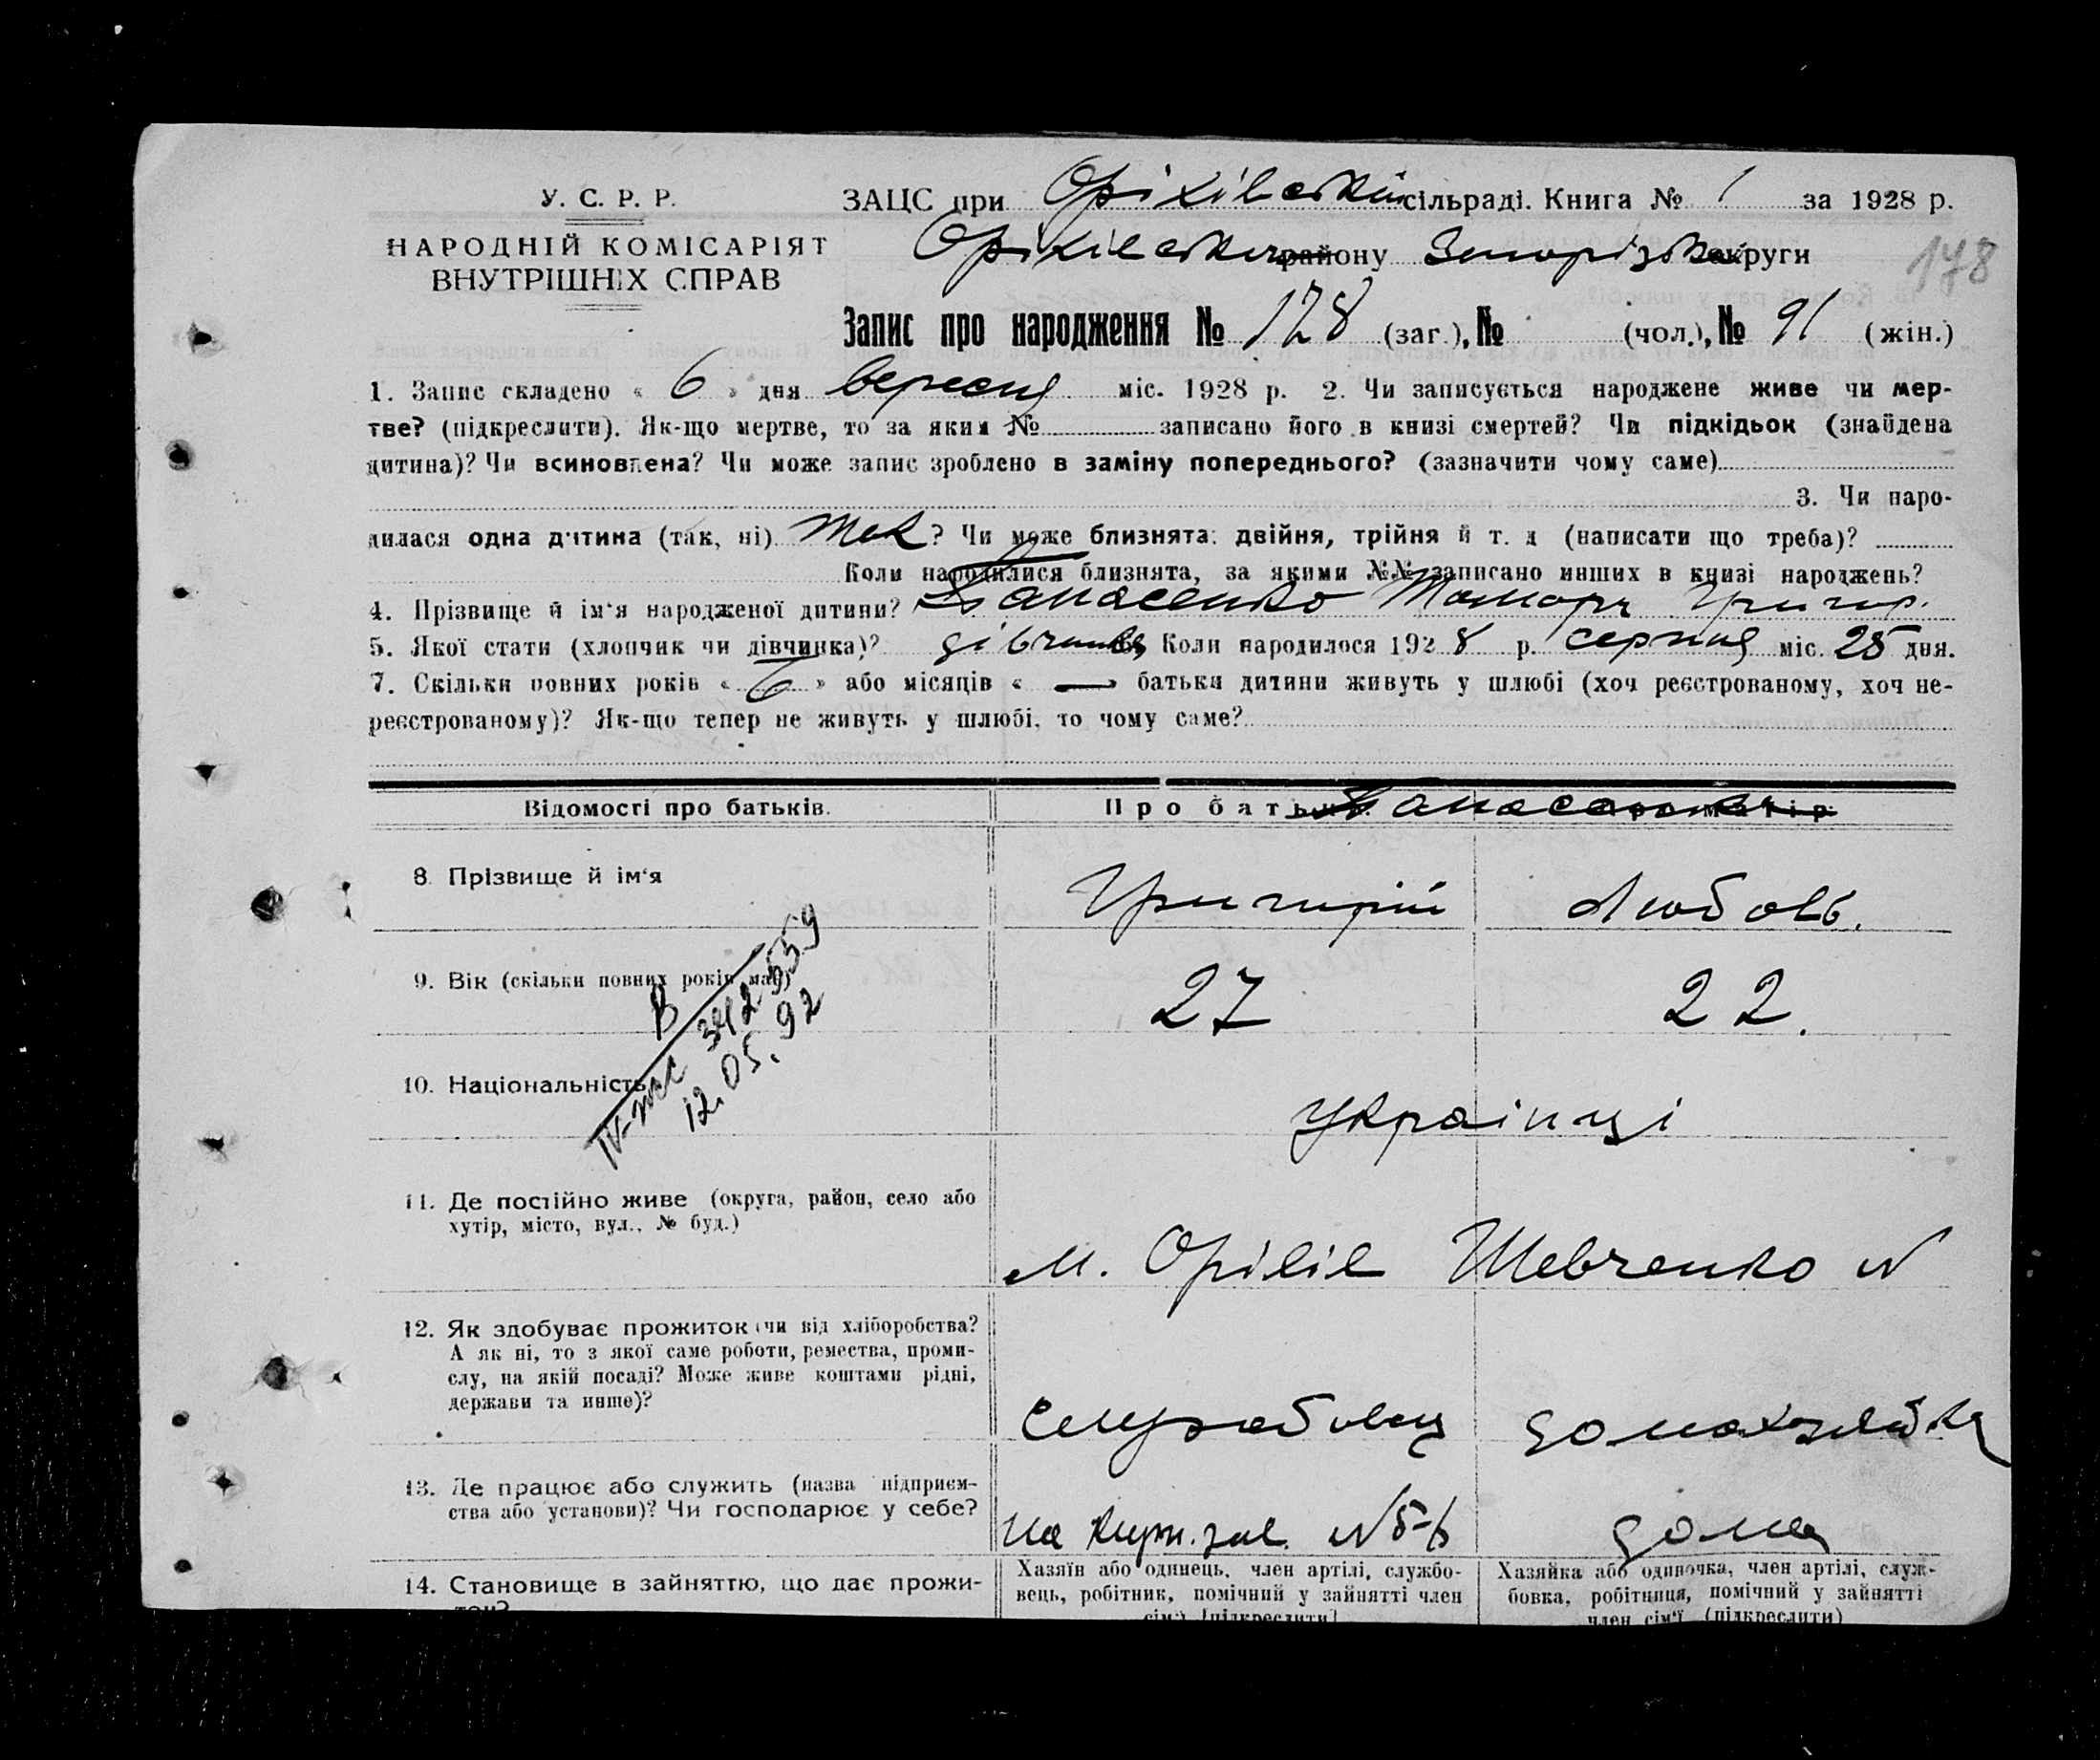 У. С. Р. Р.
НАРОДНІЙ КОМІСАРІЯТ
ВНУТРІШНІХ СПРАВ
ЗАЦС при Оріхівській сільраді. Книга № 1 за 1928 р.
Оріхівського району Запорізької округи
178
Запис про народження № 178 (заг.), № (чол.), № 91 (жін.)
1. Запис складено « 6 » дня вересня міс. 1928 р. 2. Чи записується народжене живе чи мер-
тве? (підкреслити). Як-що мертве, то за яким № записано його в книзі смертей? Чи підкідьок (знайдена
дитина)? Чи всиновлена? Чи може запис зроблено в заміну попереднього? (зазначити чому саме)
3. Чи наро-
дилася одна дитина (так, ні) так? Чи може близнята: двійня, трійня й т. д (написати що треба)?
Коли народилися близнята, за якими №№ записано инших в книзі народжень?
4. Прізвище й ім'я народженої дитини? Панасенко Тамара Григор.
5. Якої стати (хлопчик чи дівчинка)? дівчинка Коли народилося 1928 р. серпня міс. 25 дня.
7. Скільки повних років « 6 » або місяців « — » батьки дитини живуть у шлюбі (хоч реєстрованому, хоч не-
реєстрованому)? Як-що тепер не живуть у шлюбі, то чому саме?
Відомості про батьків. Про батька Панасенки Про матір
8. Прізвище й ім'я Григорій Любовь.
9. Вік (скільки повних років має) 27 22.
В
IV-ЖС 342559
12.05.92
10. Національність українці
11. Де постійно живе (округа, район, село або
хутір, місто, вул., № буд.)
м. Оріхів Шевченко №
12. Як здобуває прожиток (чи від хліборобства?
А як ні, то з якої саме роботи, ремества, проми-
слу, на якій посаді? Може живе коштами рідні,
держави та инше)?
Служبовець домохазяйка
13. Де працює або служить (назва підприєм-
ства або установи)? Чи господарює у себе?
на дома
14. Становище в зайняттю, що дає прожи-
ток?
Хазяїн або одинець, член артілі, службо-
вець, робітник, помічний у зайнятті член
сім'ї (підкреслити)
Хазяйка або одиночка, член артілі, служ-
бовка, робітниця, помічний у зайнятті
член сім'ї (підкреслити)